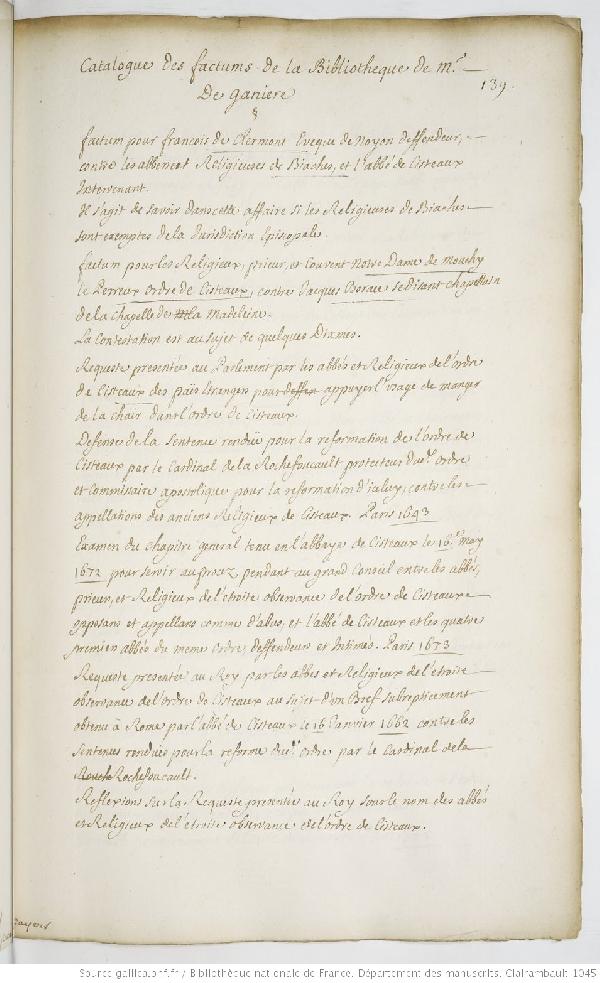 Catalogue des factums de la Bibliotheque de m.r
139.
De ganiere
factum pour francois de Clermont Eveque de Noyon deffendeur,
contre les abbesse et Religieuses de Biaches, et l'abbé de Cisteaux
Intervenant.
Il s'agit de savoir dans cette affaire si les Religieuses de Biaches
sont exemptes de la Jurisdiction Episcopale.
factum pour les Religieux, prieur, et Couvent Notre Dame de mouchy
le Perreux ordre de Cisteaux, contre Jacques se disant chapellain
de la Chapelle de la Madeleine.
La Contestation est au sujet de quelques Dixmes.
Requeste presentée au Parlement par les abbés et Religieux de l'ordre
de Cisteaux des païs etrangers pour deffen appuyer l'usage de manger
de la chair dans l'ordre de Cisteaux.
Defense de la Sentence renduë pour la reformation de l'ordre de
Cisteaux par le Cardinal de la Rochefoucault protecteur dud.t ordre
et Commissaire apostolique pour la reformation d'iceluy, contre les
appellations des anciens Religieux de Cisteaux. Paris 1643
Examen du chapitre general tenu en l'abbaye de Cisteaux le 16.e may
1672 pour servir au procez, pendant au grand Conseil entre les abbés,
prieurs, et Religieux de l'etroite observance de l'ordre de Cisteaux
opposans et appellans comme d'abus, et l'abbé de Cisteaux et les quatre
premiers abbés du meme ordre, deffendeurs et Intimés. Paris 1673
Requeste presentée au Roy par les abbés et Religieux de l'etroite
observance de l'ordre de Cisteaux au sujet d'un Bref subrepticement
obtenu à Rome par l'abbé de Cisteaux le 16 Janvier 1662 contre les
Sentences rendues pour la reforme du.t ordre par le Cardinal de la
Rochefoucault.
Reflexions sur la Requeste presentée au Roy sous le nom des abbés
et Religieux de l'etroite observance de l'ordre de Cisteaux.
Source gallica.bnf.fr / Bibliothèque nationale de France. Département des manuscrits. Clairambault 1045